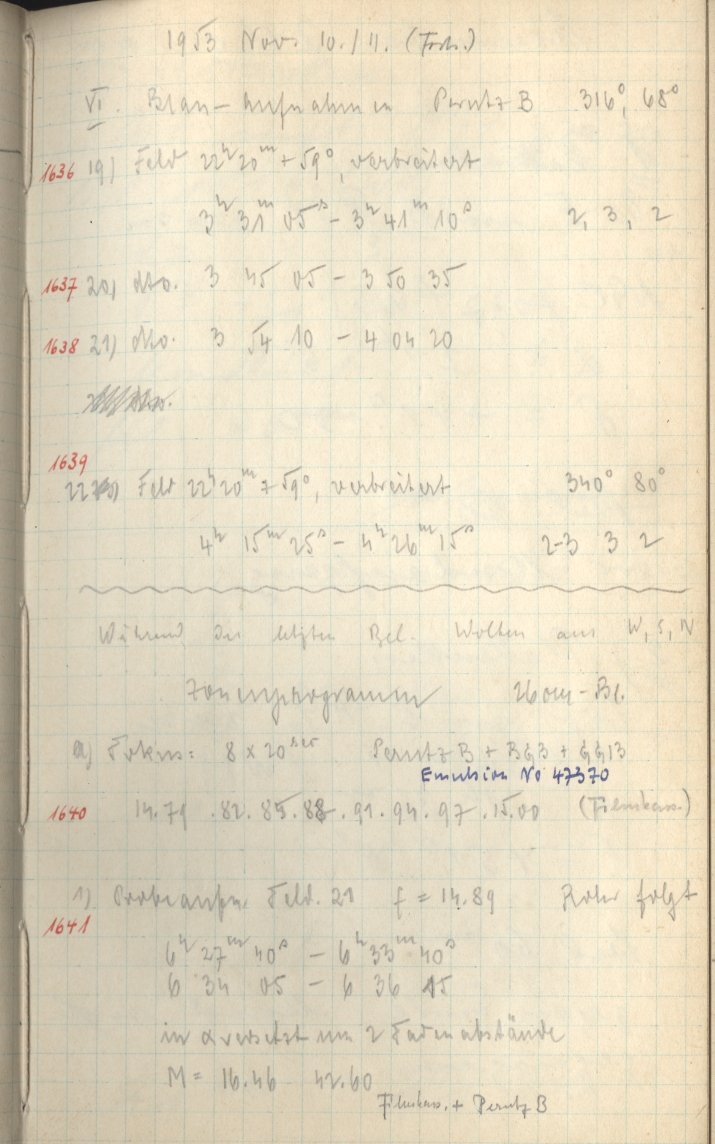 1953 Nov. 10./11. (Forts.)
VI. Blau-Aufnahmen Perutz B 316°, 68°
1636 19) Feld 22ʰ20ᵐ + 59°, verbreitert
3ʰ 31ᵐ 05ˢ – 3ʰ 41ᵐ 10ˢ 2, 3, 2
1637 20) dto. 3 45 05 – 3 50 35
1638 21) dto. 3 54 10 – 4 04 20
1639
22) Feld 22ʰ20ᵐ + 59°, verbreitert 340° 80°
4ʰ 15ᵐ 25ˢ – 4ʰ 26ᵐ 15ˢ 2-3 3 2
Während der letzten Bel. Wolken aus W, S, N
Zonenprogramm 26 cm - Br.
a) Fokus: 8 × 20ˢᵉᶜ Perutz B + BG3 + GG13
Emulsion No 47370
1640 14.79 .82. 85. 88 .91 .94 .97 .15.00 (Filmkass.)
1) Probeaufn. Feld. 21 f = 14.89 Rohr folgt
1641
6ʰ 27ᵐ 40ˢ – 6ʰ 33ᵐ 40ˢ
6 34 05 – 6 36 15
in α versetzt um 2 Fadenabstände
M = 16.46 42.60
Filmkass. + Perutz B